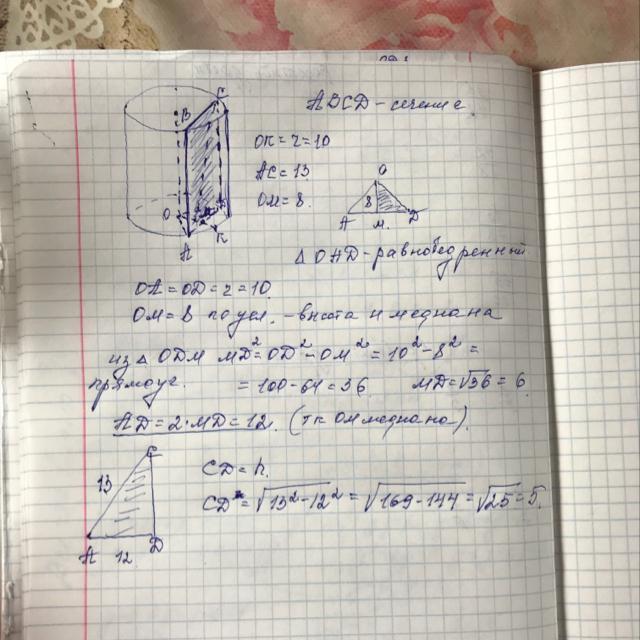 ABCD - сечение.
B C
OK = r = 10
AC = 13
OM = 8.
O
8
A M. D
O
A K
△ OAD - равнобедренный
OA = OD = r = 10.
OM = 8 по усл. - высота и медиана
из △ ODM MD² = OD² - OM² = 10² - 8² =
прямоуг. = 100 - 64 = 36 MD = √36 = 6.
AD = 2·MD = 12. (тк OM медиана).
C
13
CD = h.
CD = √13² - 12² = √169 - 144 = √25 = 5.
A 12 D